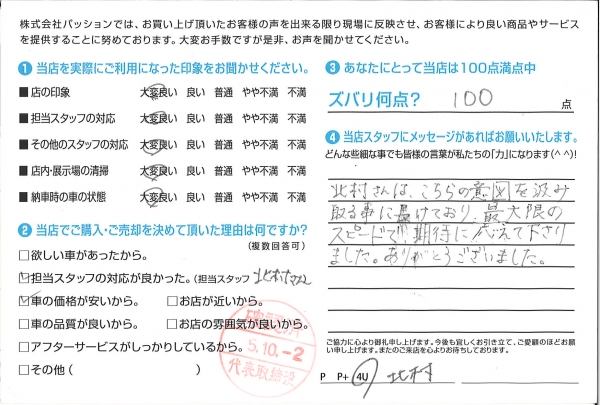 株式会社パッションでは、お買い上げ頂いたお客様の声を出来る限り現場に反映させ、お客様により良い商品やサービス
を提供することに努めております。大変お手数ですが是非、お声を聞かせてください。
1 当店を実際にご利用になった印象をお聞かせください。
■店の印象 大変良い 良い 普通 やや不満 不満
■担当スタッフの対応 大変良い 良い 普通 やや不満 不満
■その他のスタッフの対応 大変良い 良い 普通 やや不満 不満
■店内・展示場の清掃 大変良い 良い 普通 やや不満 不満
■納車時の車の状態 大変良い 良い 普通 やや不満 不満
2 当店でご購入・ご売却を決めて頂いた理由は何ですか?
(複数回答可)
□欲しい車があったから。
☑担当スタッフの対応が良かった。(担当スタッフ 北村さん
☑車の価格が安いから。 □お店が近いから。
□車の品質が良いから。 □お店の雰囲気が良いから。
□アフターサービスがしっかりしているから。
□その他( )
確認済
5.10.-2
代表取締役
3 あなたにとって当店は100点満点中
ズバリ何点? 100 点
4 当店スタッフにメッセージがあればお願いいたします。
どんな些細な事でも皆様の言葉が私たちの「力」になります(^ ^)!
北村さんは、こちらの意図を汲み
取る事に長けており、最大限の
スピードで期待に応えて下さり
ました。ありがとうございました。
ご協力に心より御礼申し上げます。今後も宜しくお引き立て、ご愛顧のほどお願
い申し上げます。またのご来店を心よりお待ちしております。
P P+ 4U 北村